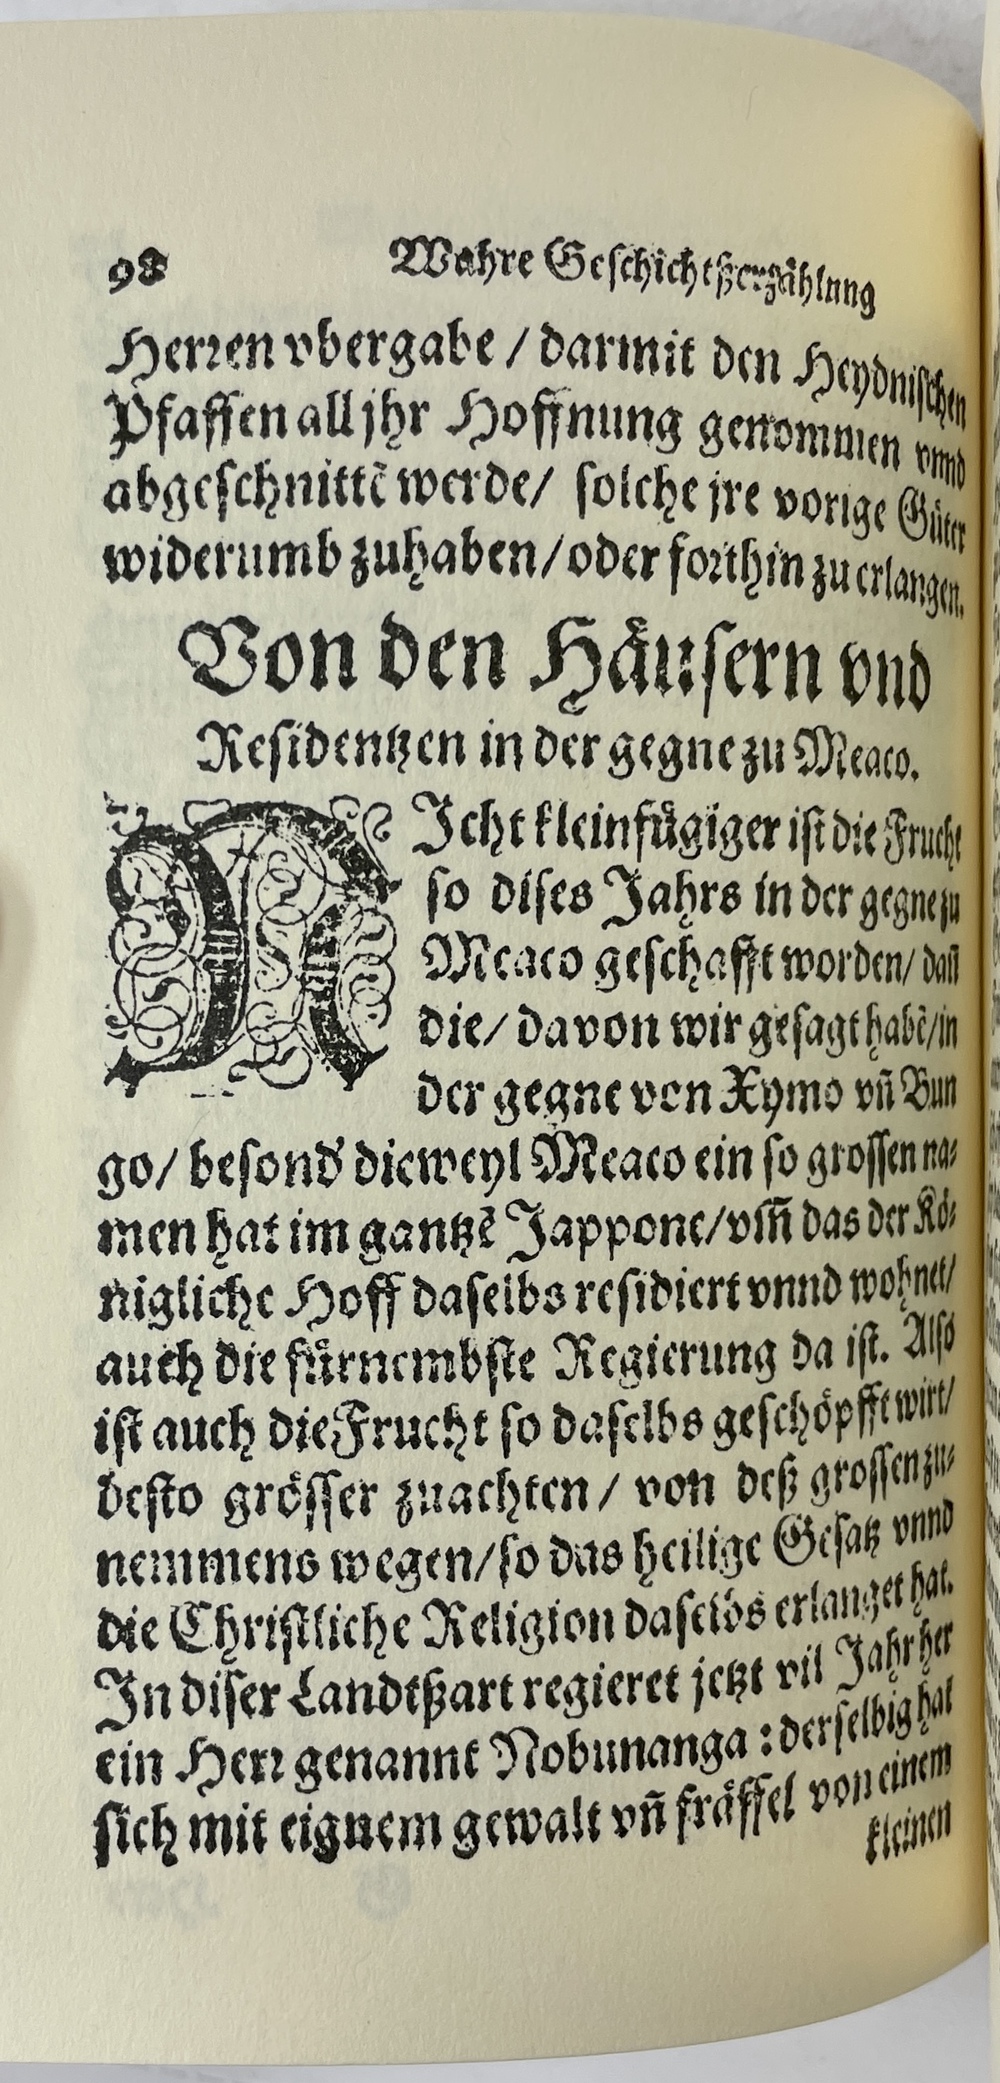 98 Wahre Geschichtßerzählung
Herren vbergabe / darmit den Heydnischen
Pfaffen all jhr Hoffnung genommen vnnd
abgeschnittē werde / solche jre vorige Güter
widerumb zuhaben / oder forthin zu erlangen.
Von den Häusern vnd
Residentzen in der gegne zu Meaco.
NIcht kleinfügiger ist die Frucht
so dises Jahrs in der gegne zu
Meaco geschafft worden / dañ
die / davon wir gesagt habē / in
der gegne von Xymo vñ Bun
go / besond' dieweyl Meaco ein so grossen na⸗
men hat im gantzē Jappone / vm̃ das der Kö⸗
nigliche Hoff daselbs residiert vnnd wohnet /
auch die fürnembste Regierung da ist. Also
ist auch die Frucht so daselbs geschöpfft wirt /
desto grösser zuachten / von deß grossen zu⸗
nemmens wegen / so das heilige Gesatz vnnd
die Christliche Religion daselbs erlanget hat.
In diser Landtßart regieret jetzt vil Jahr her
ein Herr genannt Nobunanga : derselbig hat
sich mit eignem gewalt vñ fräffel von einem
kleinen